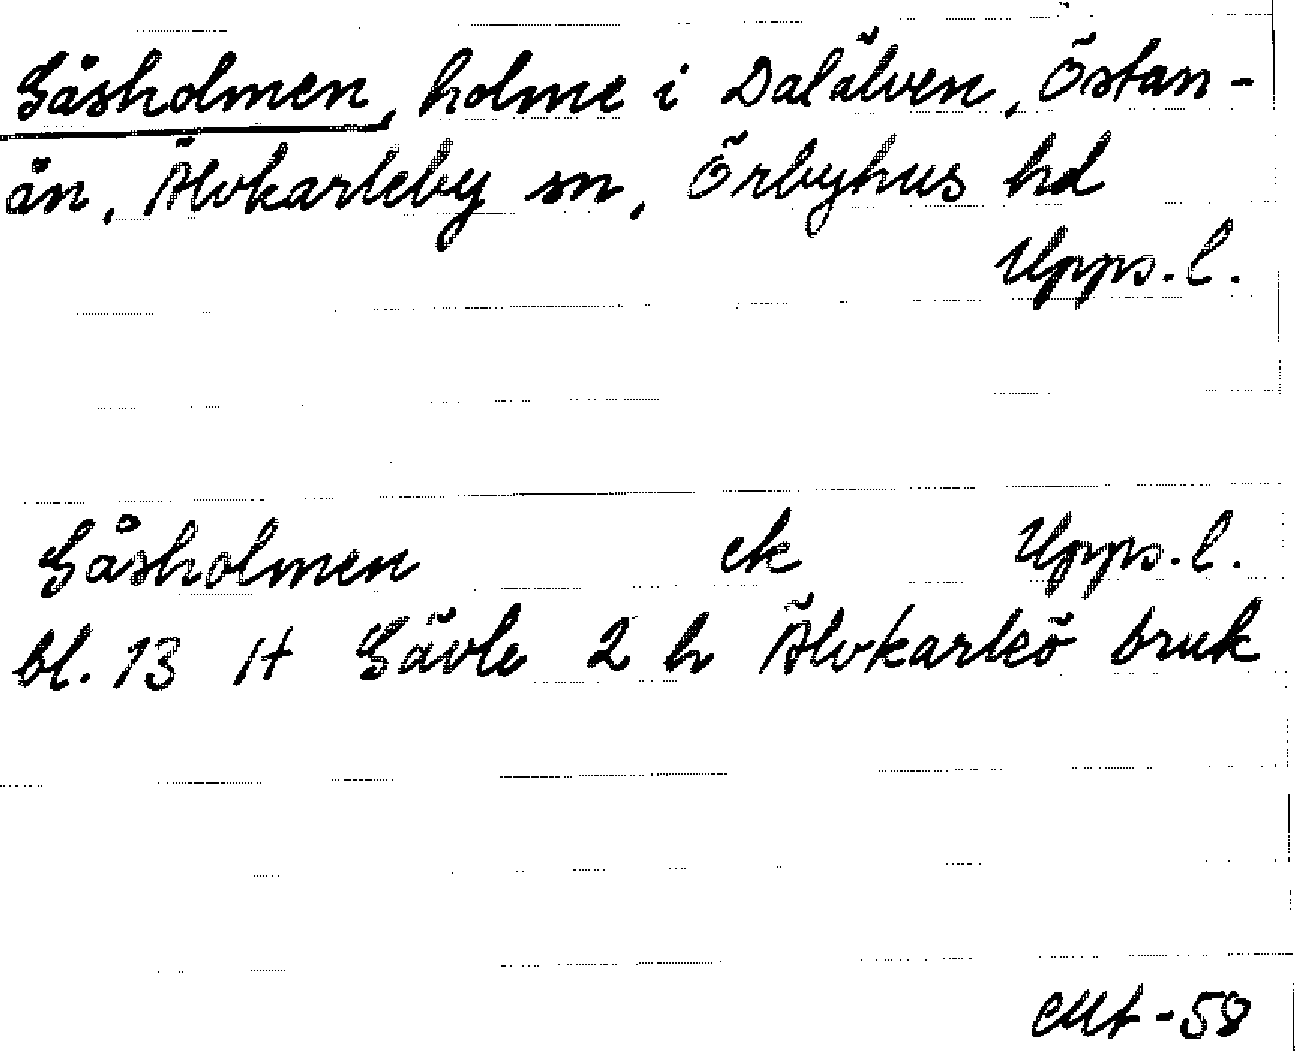 Gåsholmen, holme i Dalälven, Östan-
ån, Älvkarleby sn, Örbyhus hd
Upps.l.
Gåsholmen ek Upps.l.
bl. 13 H Gävle 2 h Älvkarleö bruk
-58